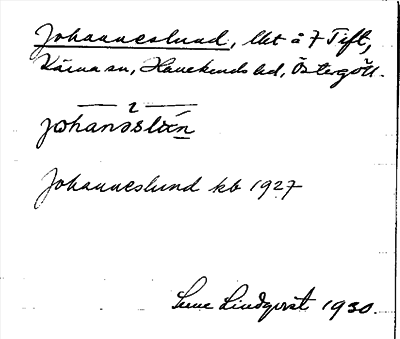 Johanneslund, lht å 7 Tift,
Kärna sn, Hanekinds hd, Östergötl.
2
johanəslən
Johanneslund kb 1927
Sune Lindqvist 1930.